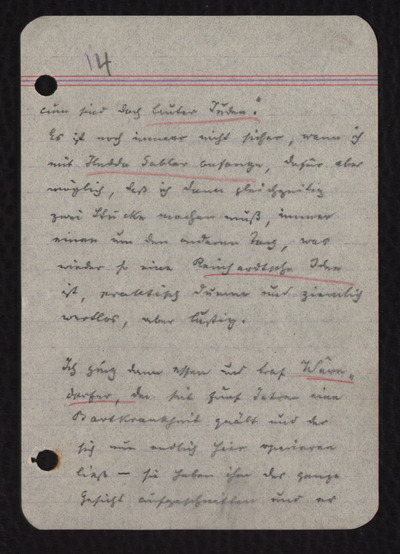 14
sind doch lauter Juden."
Es ist noch immer nicht sicher, wann ich
mit Hedda Gabler anfange, dafür aber
möglich, daß ich dann gleichzeitig
zwei Stücke machen muß, immer
einen um den anderen Tag, was
wieder so eine Reinhardtsche Idee
ist, praktisch dumm und ziemlich
wertlos, aber lustig.
Ich ging dann essen und traf Wärn-
dorfer, der seit fünf Jahren eine
Bartkrankheit quält und der
sich nun endlich hier operieren
ließ – sie haben ihm das ganze
Gesicht aufgeschnitten und er